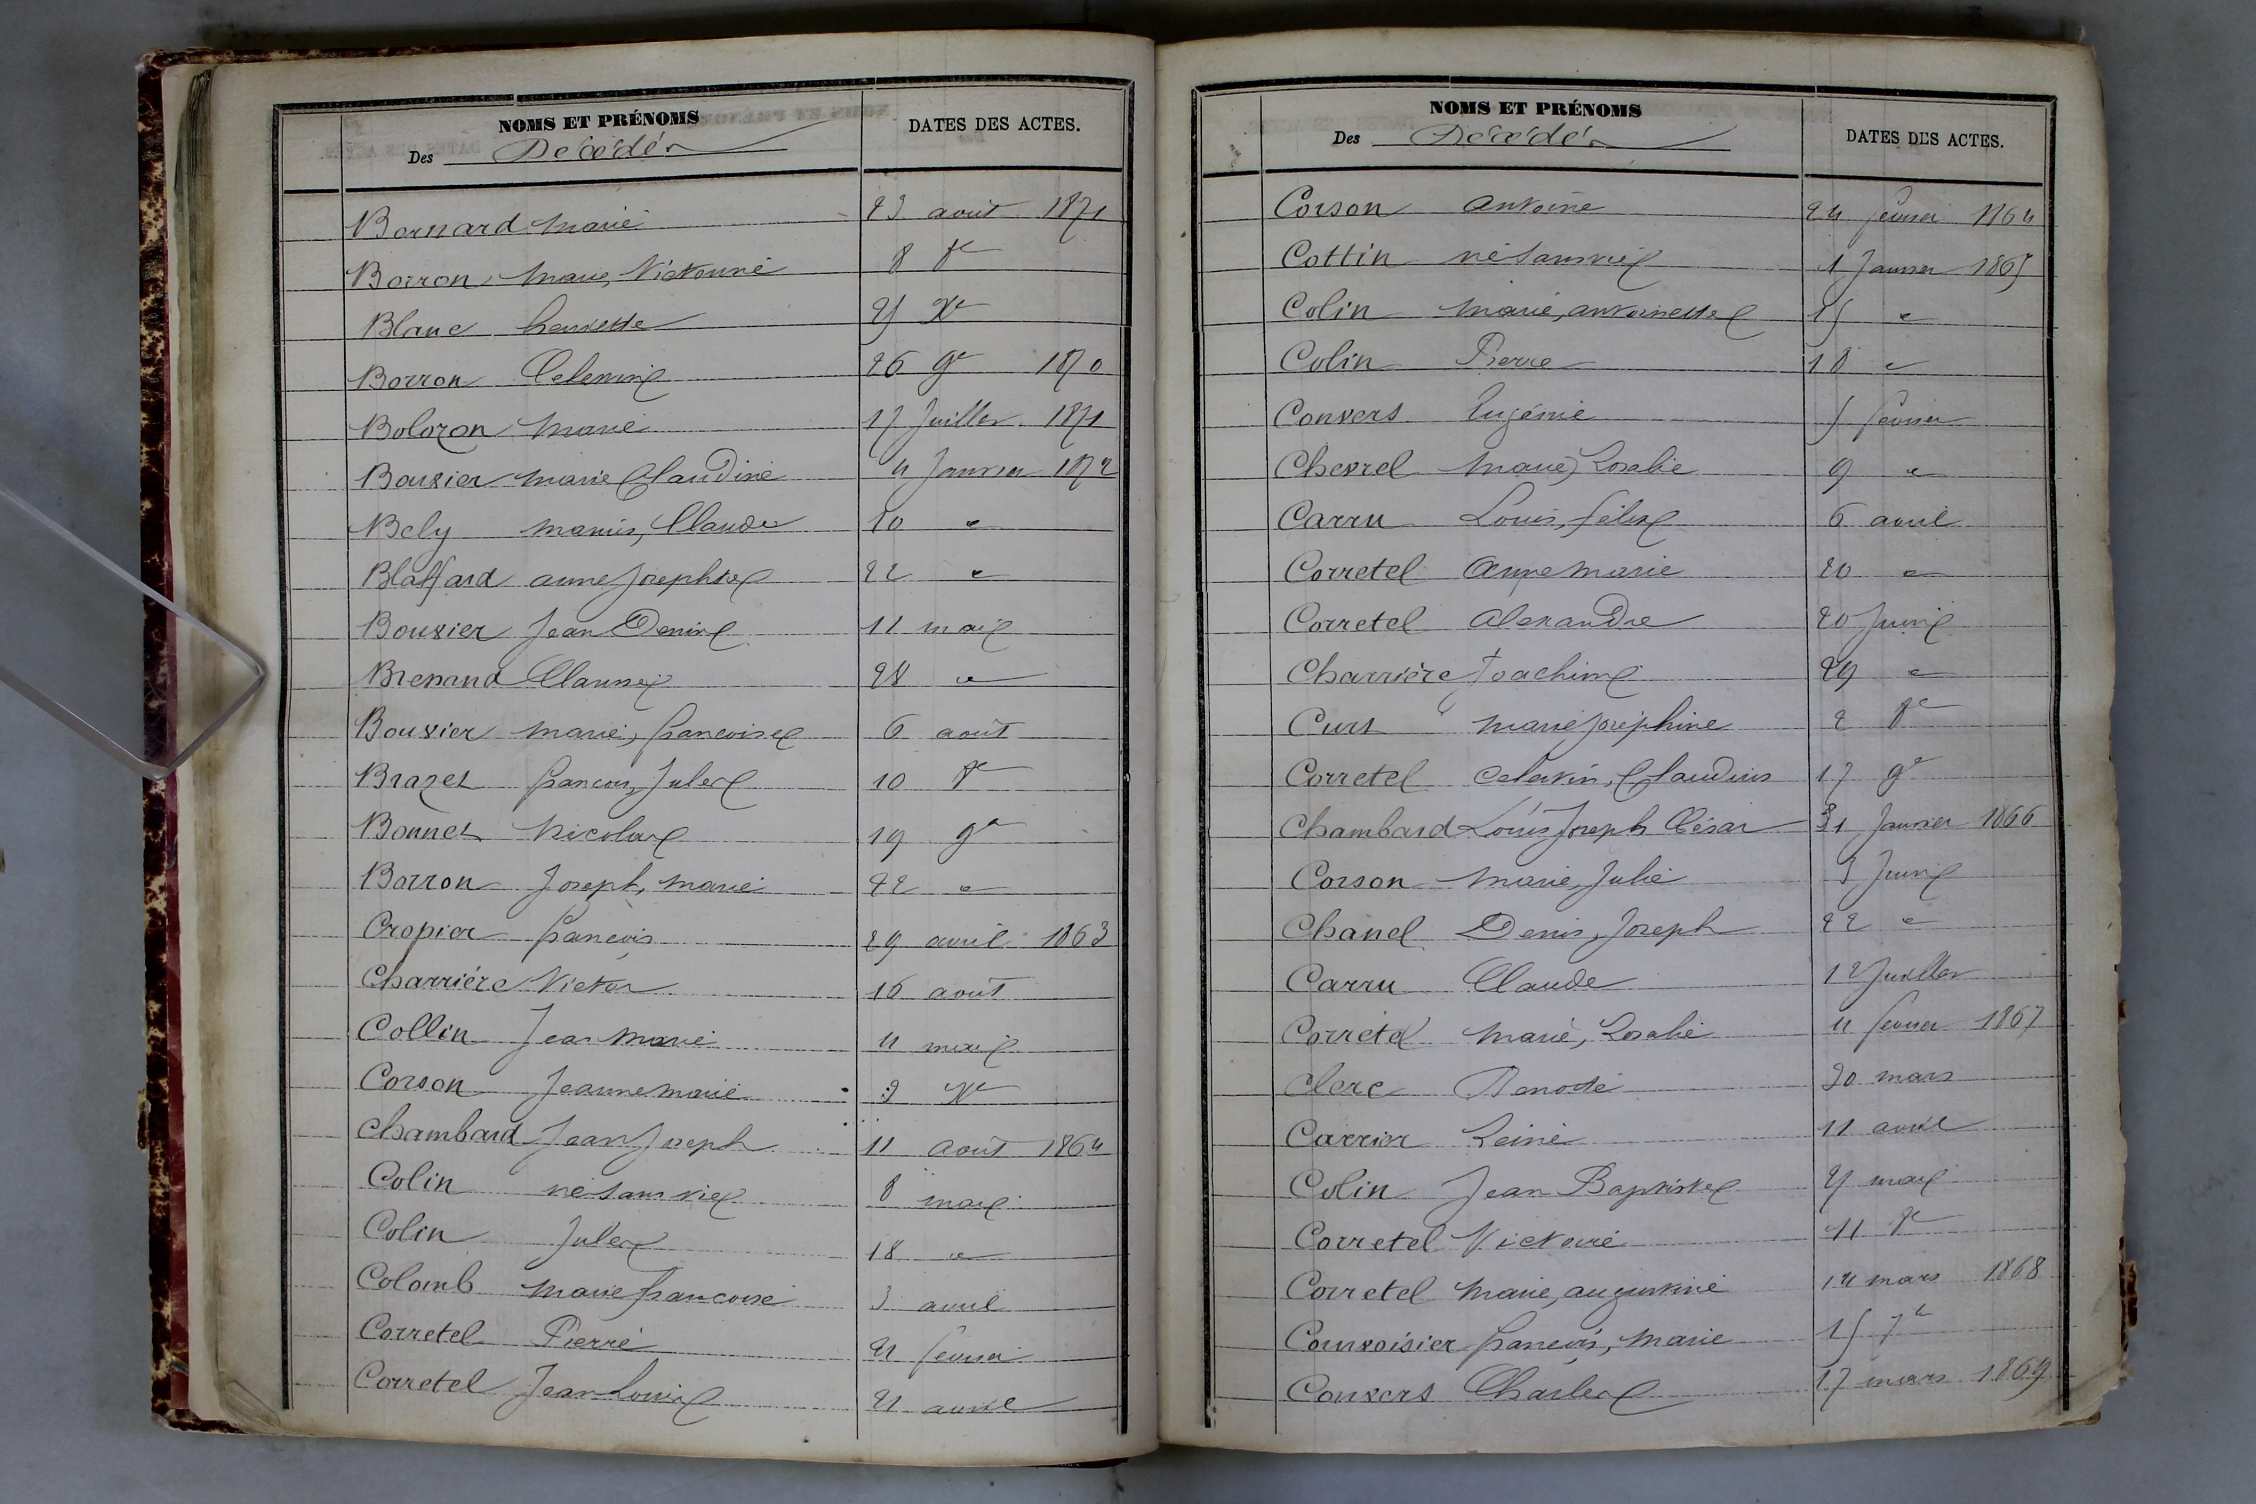 NOMS ET PRÉNOMS
Des Décédés
DATES DES ACTES.
Bornard Marie 23 août 1871
Borron Marie, Victorine 8 8e
Blanc henriette 25 Xe
Borron Celemine 26 9e 1870
Bolozon Marie 17 Juillet 1871
Bouvier Marie Claudine 4 Janvier 1872
Bely Marius, Claude 10 "
Blaffard anne Josephte 22 "
Bouvier Jean Denis 11 mai
Brenand 28 "
Bouvier Marie, francoise 6 août
Brazet francois, Jules 10 8e
Bonnet Nicolas 19 9e
Borron Joseph, Marie 22 "
Cropier francois 29 avril 1863
Charriére Victor 16 août
Collin Jean Marie 11 mai
Corson Jeanne Marie 3 Xe
Chambard Jean Joseph 11 août 1864
Colin né sans vie 8 mai
Colin Jules 18 "
Colomb Marie francoise 3 avril
Corretel Pierre 21 fevrier
Corretel Jean Louis 21 avril
NOMS ET PRÉNOMS
Des Décédés
DATES DES ACTES.
Corson Antoine 24 fevrier 1864
Cottin né sans vie 1 Janvier 1865
Colin Marie, antoinette 15 "
Colin Pierre 18 "
Convers Eugénie 5 fevrier
Chevrel Marie, Rosalie 9 "
Carru Louis, félix 6 avril
Corretel Anne Marie 20 "
Corretel Alexandre 20 Juin
Charriére Joachim 29 "
Curt Marie Joséphine 2 8e
Corretel Celestin, Claudius 17 9e
Chambard Louis Joseph César 31 Janvier 1866
Corson Marie, Julie 5 Juin
Chanel Denis, Joseph 22 "
Carru Claude 12 Juillet
Corretel Marie, Rosalie 11 fevrier 1867
Clerc Benoite 30 mars
Carrier Reine 11 avril
Colin Jean Baptiste 25 mai
Corretel Victoire 11 8e
Corretel Marie, augustine 14 mars 1868
Courvoisier francois, Marie 15 7e
Convers Charles 17 mars 1869